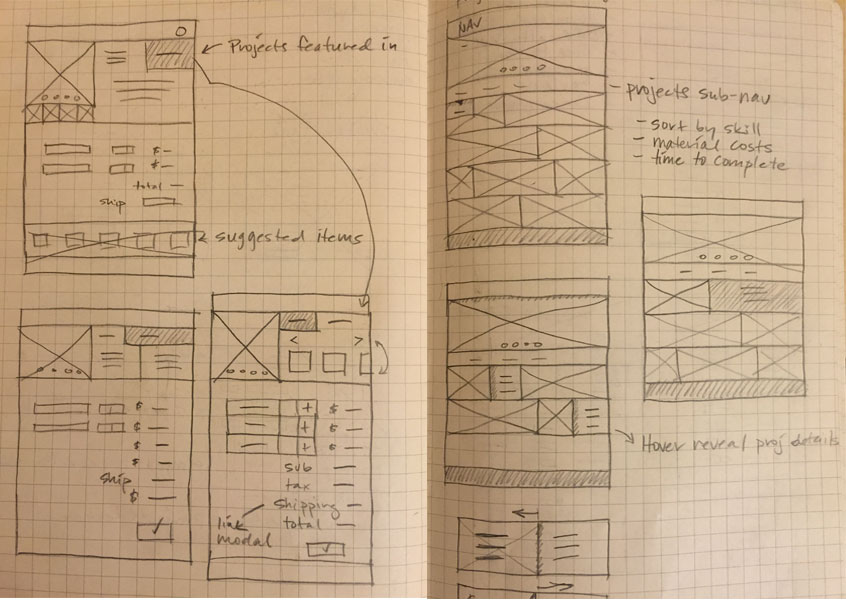 Projects featured in
$
$
total
ship
suggested items
$
$
$
$
ship
$
< >
+ $
+ $
+ $
sub
tax
shipping
total
link
modal
NAV
projects sub-nav
- sort by skill
- material costs
- time to complete
Hover reveal proj details